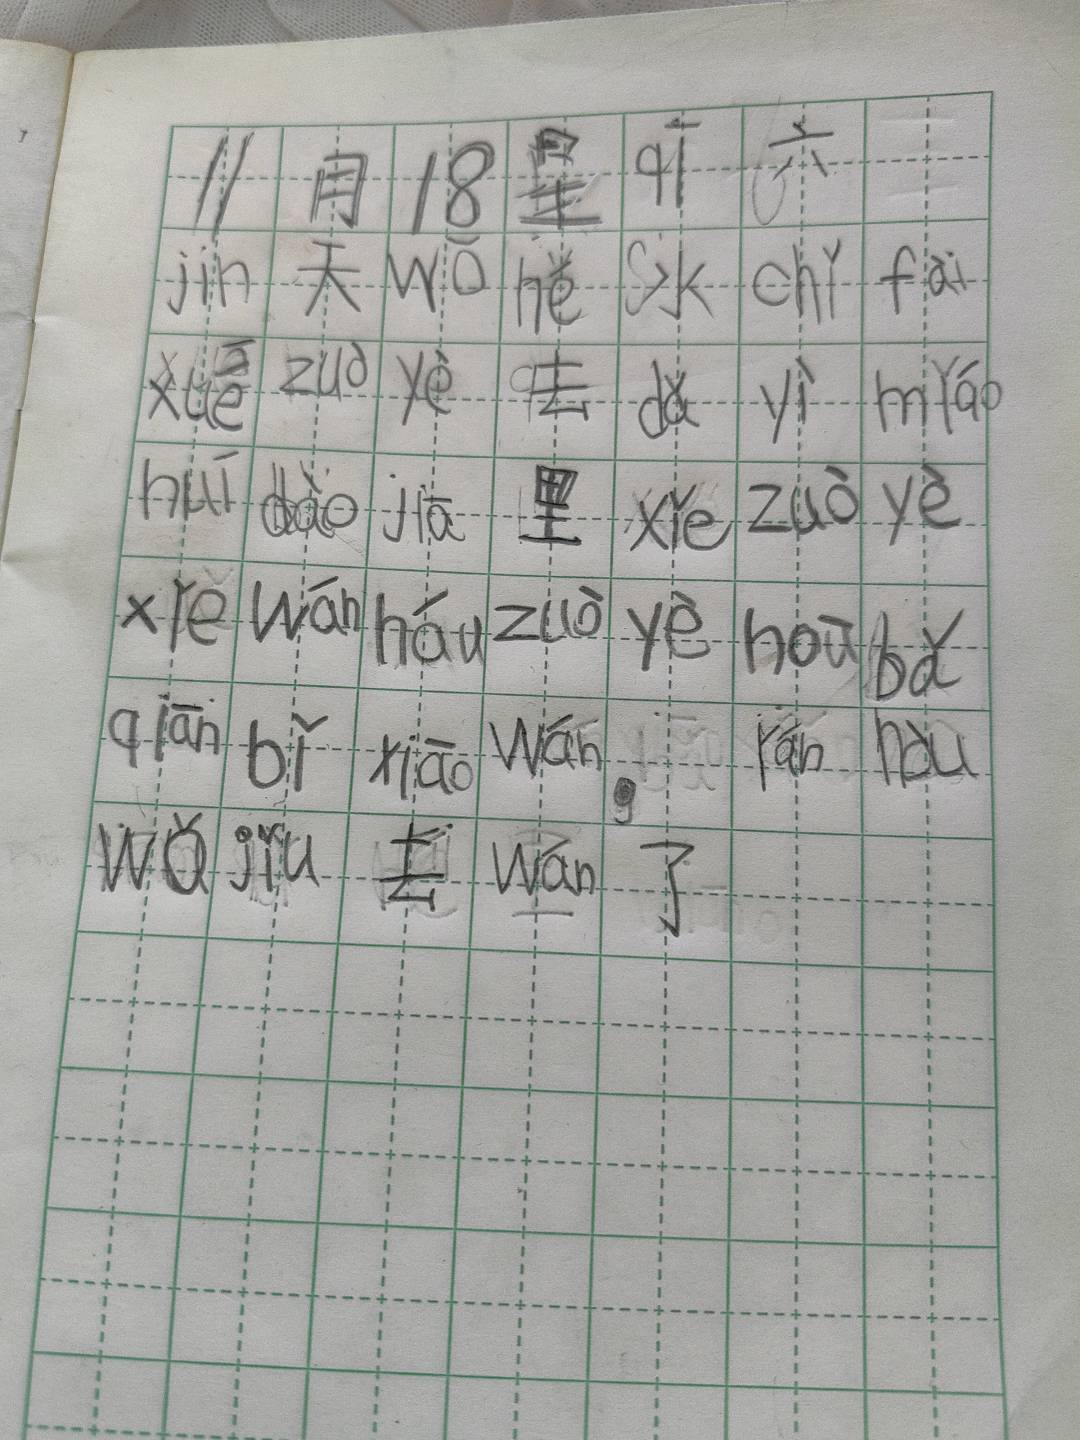 11 月 18 星 qī 六
jin 天 wǒ hě chǐ fài
xuē zuò yè 去 dǎ yì miáo
huí dào jiā 里 xiě zuò yè
xiě wán háu zuò yè hoū bǎ
qiān bǐ xiāo wán , rán hòu
wǒ jǐu 去 wán 了